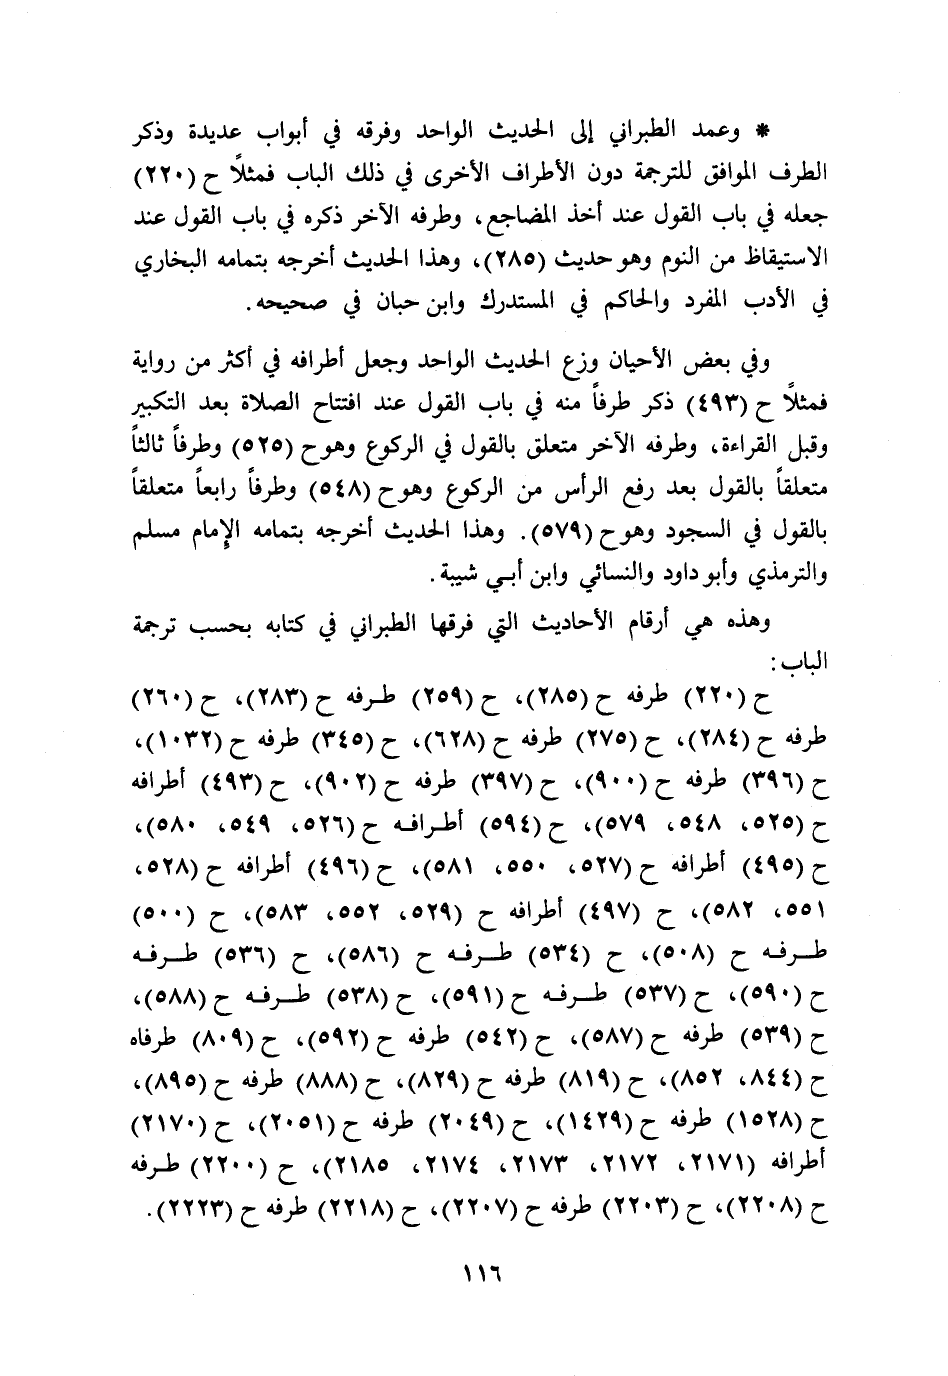 * وعمد الطبراني إلى الحديث الواحد وفرقه في أبواب عديدة وذكر
الطرف الموافق للترجمة دون الأطراف الأخرى في ذلك الباب فمثلاً ح (٢٢٠)
جعله في باب القول عند أخذ المضاجع، وطرفه الآخر ذكره في باب القول عند
الاستيقاظ من النوم وهو حديث (٢٨٥)، وهذا الحديث أخرجه بتمامه البخاري
في الأدب المفرد والحاكم في المستدرك وابن حبان في صحيحه.
وفي بعض الأحيان وزع الحديث الواحد وجعل أطرافه في أكثر من رواية
فمثلاً ح (٤٩٣) ذكر طرفاً منه في باب القول عند افتتاح الصلاة بعد التكبير
وقبل القراءة، وطرفه الآخر متعلق بالقول في الركوع وهو ح (٥٢٥) وطرفاً ثالثاً
متعلقاً بالقول بعد رفع الرأس من الركوع وهو ح (٥٤٨) وطرفاً رابعاً متعلقاً
بالقول في السجود وهو ح (٥٧٩). وهذا الحديث أخرجه بتمامه الإمام مسلم
والترمذي وأبو داود والنسائي وابن أبي شيبة.
وهذه هي أرقام الأحاديث التي فرقها الطبراني في كتابه بحسب ترجمة
الباب:
ح (٢٢٠) طرفه ح (٢٨٥)، ح (٢٥٩) طرفه ح (٢٨٣)، ح (٢٦٠)
طرفه ح (٢٨٤)، ح (٢٧٥) طرفه ح (٦٢٨)، ح (٣٤٥) طرفه ح (١٠٣٢)،
ح (٣٩٦) طرفه ح (٩٠٠)، ح (٣٩٧) طرفه ح (٩٠٢)، ح (٤٩٣) أطرافه
ح (٥٢٥، ٥٤٨، ٥٧٩)، ح (٥٩٤) أطرافه ح (٥٢٦، ٥٤٩، ٥٨٠)،
ح (٤٩٥) أطرافه ح (٥٢٧، ٥٥٠، ٥٨١)، ح (٤٩٦) أطرافه ح (٥٢٨،
٥٥١، ٥٨٢)، ح (٤٩٧) أطرافه ح (٥٢٩، ٥٥٢، ٥٨٣)، ح (٥٠٠)
طرفه ح (٥٠٨)، ح (٥٣٤) طرفه ح (٥٨٦)، ح (٥٣٦) طرفه
ح (٥٩٠)، ح (٥٣٧) طرفه ح (٥٩١)، ح (٥٣٨) طرفه ح (٥٨٨)،
ح (٥٣٩) طرفه ح (٥٨٧)، ح (٥٤٢) طرفه ح (٥٩٢)، ح (٨٠٩) طرفاه
ح (٨٤٤، ٨٥٢)، ح (٨١٩) طرفه ح (٨٢٩)، ح (٨٨٨) طرفه ح (٨٩٥)،
ح (١٥٢٨) طرفه ح (١٤٢٩)، ح (٢٠٤٩) طرفه ح (٢٠٥١)، ح (٢١٧٠)
أطرافه (٢١٧١، ٢١٧٢، ٢١٧٣، ٢١٧٤، ٢١٨٥)، ح (٢٢٠٠) طرفه
ح (٢٢٠٨)، ح (٢٢٠٣) طرفه ح (٢٢٠٧)، ح (٢٢١٨) طرفه ح (٢٢٢٣).
١١٦